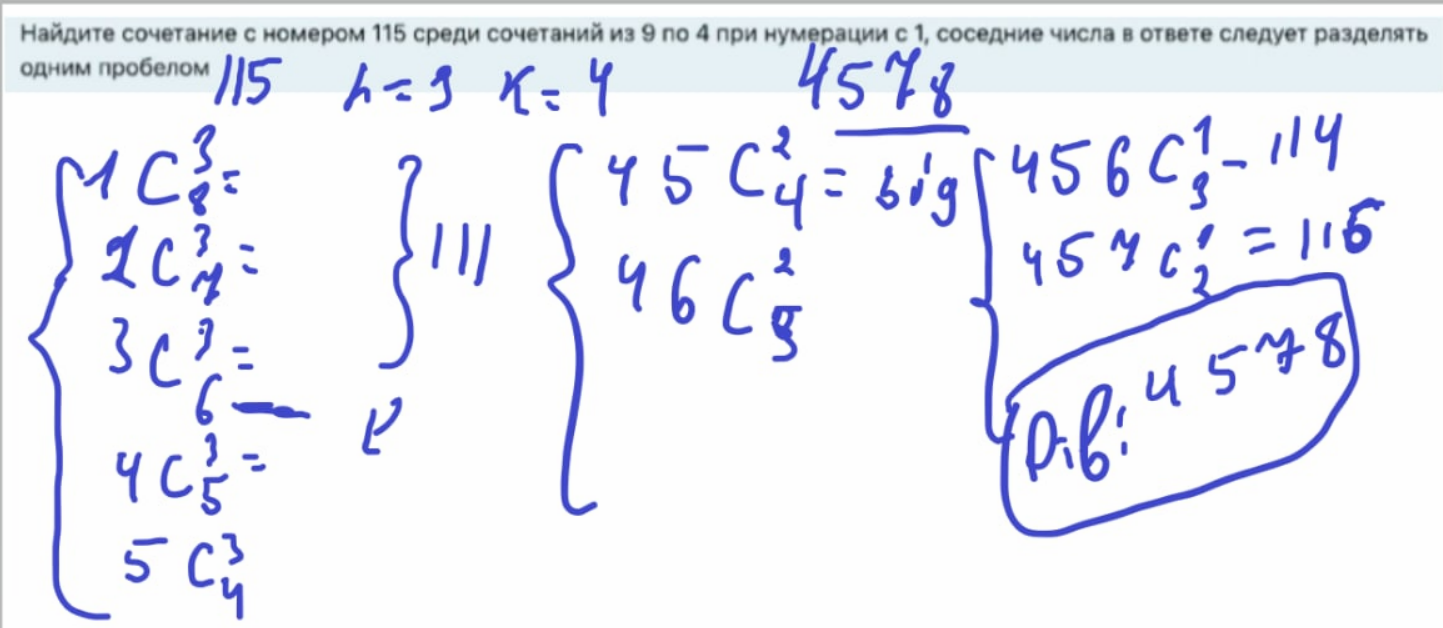 Найдите сочетание с номером 115 среди сочетаний из 9 по 4 при нумерации с 1, соседние числа в ответе следует разделять
одним пробелом
115 n = 9 K = 4 4578
1 C 3 8 =
2 C 3 7 =
3 C 3 6 =
4 C 3 5 =
5 C 3 4
111
4 5 C 2 4 = big
4 6 C 2 3
4 5 6 C 1 3 - 114
4 5 7 C 1 2 = 116
4 5 7 8